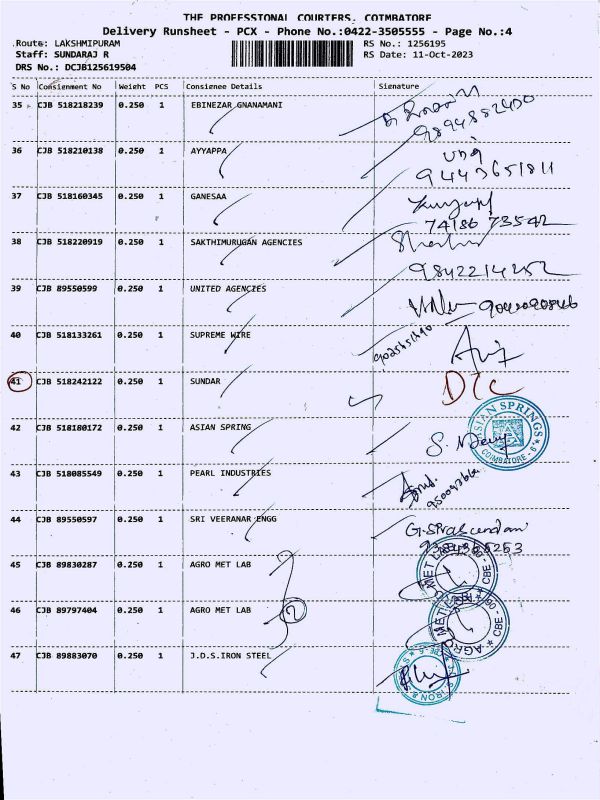 THE PROFESSIONAL COURIERS, COIMBATORE
Delivery Runsheet - PCX - Phone No.:0422-3505555 - Page No.:4
Route: LAKSHMIPURAM RS No.: 1256195
Staff: SUNDARAJ R RS Date: 11-Oct-2023
DRS No.: DCJB125619504
S No Consignment No Weight PCS Consignee Details Signature
35 CJB 518218239 0.250 1 EBINEZAR GNANAMANI
9894882400
36 CJB 518210138 0.250 1 AYYAPPA
9443651811
37 CJB 518160345 0.250 1 GANESAA
74186 73542
38 CJB 518220919 0.250 1 SAKTHIMURUGAN AGENCIES
9842214252
39 CJB 89550599 0.250 1 UNITED AGENCZES
40 CJB 518133261 0.250 1 SUPREME WIRE
41 CJB 518242122 0.250 1 SUNDAR D/C
42 CJB 518180172 0.250 1 ASIAN SPRING
ASIAN SPRINGS
COIMBATORE - 6
43 CJB 518085549 0.250 1 PEARL INDUSTRIES
44 CJB 89550597 0.250 1 SRI VEERANAR ENGG
45 CJB 89830287 0.250 1 AGRO MET LAB
46 CJB 89797404 0.250 1 AGRO MET LAB 2
AGRO MET LAB
CBE
47 CJB 89883070 0.250 1 J.D.S.IRON STEEL